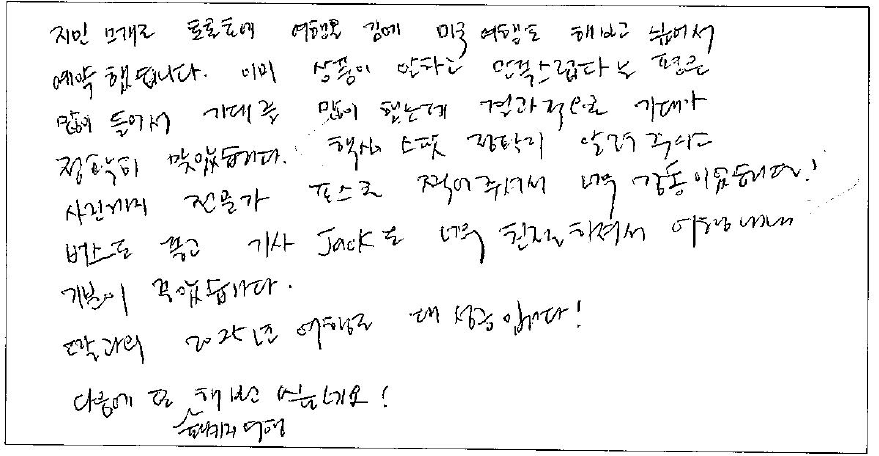 지인 소개로 토론토에 여행온 김에 미국 여행도 해보고 싶어서
예약 했답니다. 이미 상품이 알차고 만족스럽다는 평을
많이 들어서 기대를 많이 했는데 결과적으로 기대가
정확히 맞았습니다. 핵심 스팟 알려 주시고
사진까지 전문가 포스로 찍어주셔서 너무 감동이었습니다!
버스도 좋고 기사 Jack도 너무 친절하셔서 여행내내
기분이 좋았습니다.
2025년 여행은 대 성공입니다!
다음에 또 해보고 싶은걸요!
패키지 여행